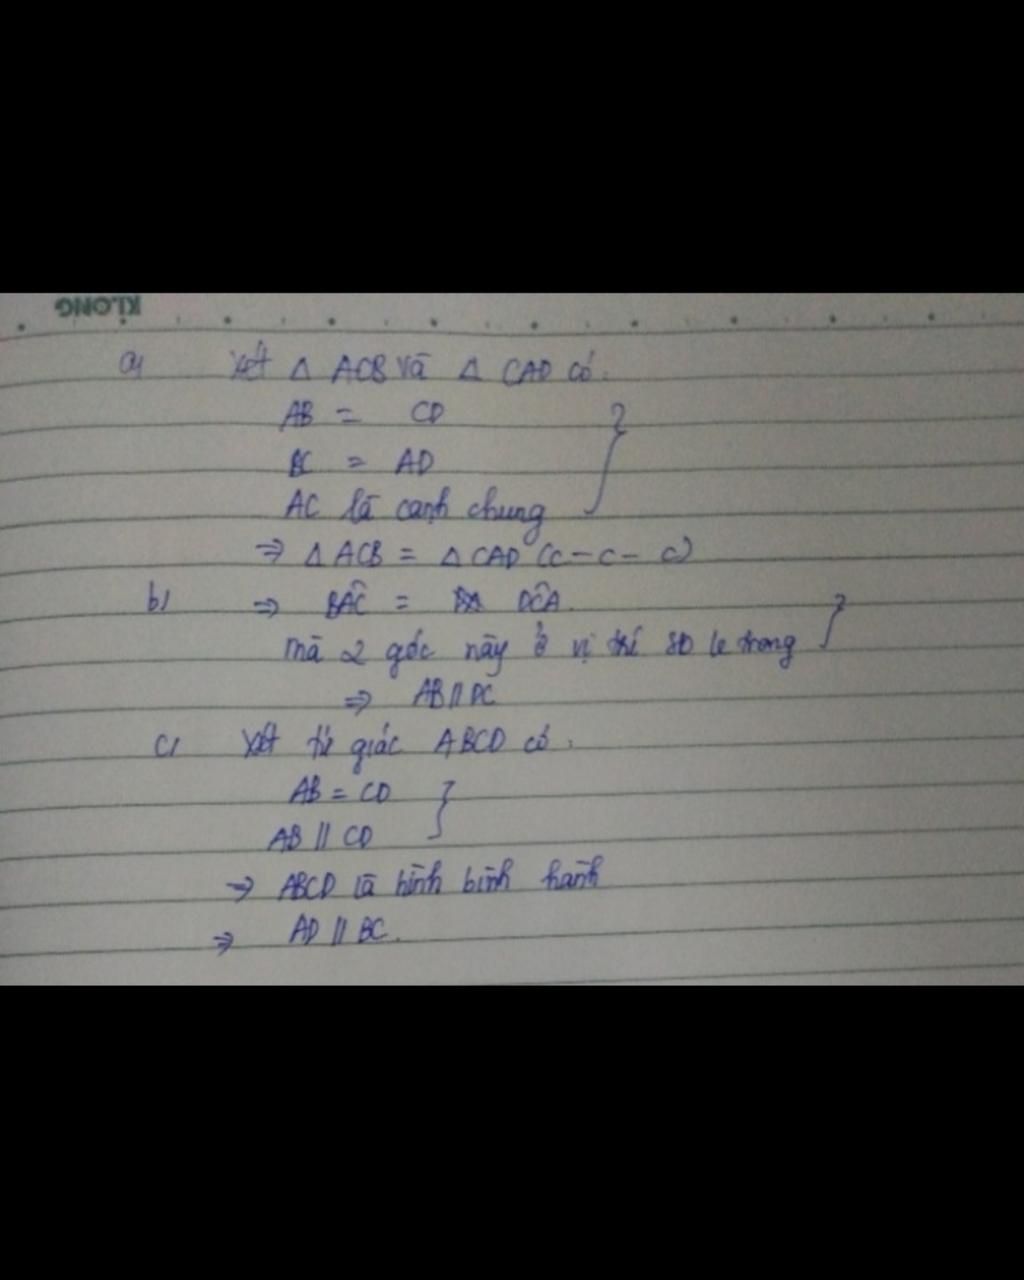 KLONG
a) Xét △ ACB và △ CAD có:
AB = CD
BC = AD
AC là cạnh chung
⇒ △ ACB = △ CAD (c - c - c)
b) ⇒ BÂC = DĈA.
mà 2 góc này ở vị trí so le trong
⇒ AB // DC
c) Xét tứ giác ABCD có:
AB = CD
AB // CD
⇒ ABCD là hình bình hành
⇒ AD // BC.